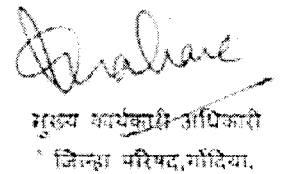 मुख्य कार्यकारी अधिकारी
जिल्हा परिषद,गोंदिया.